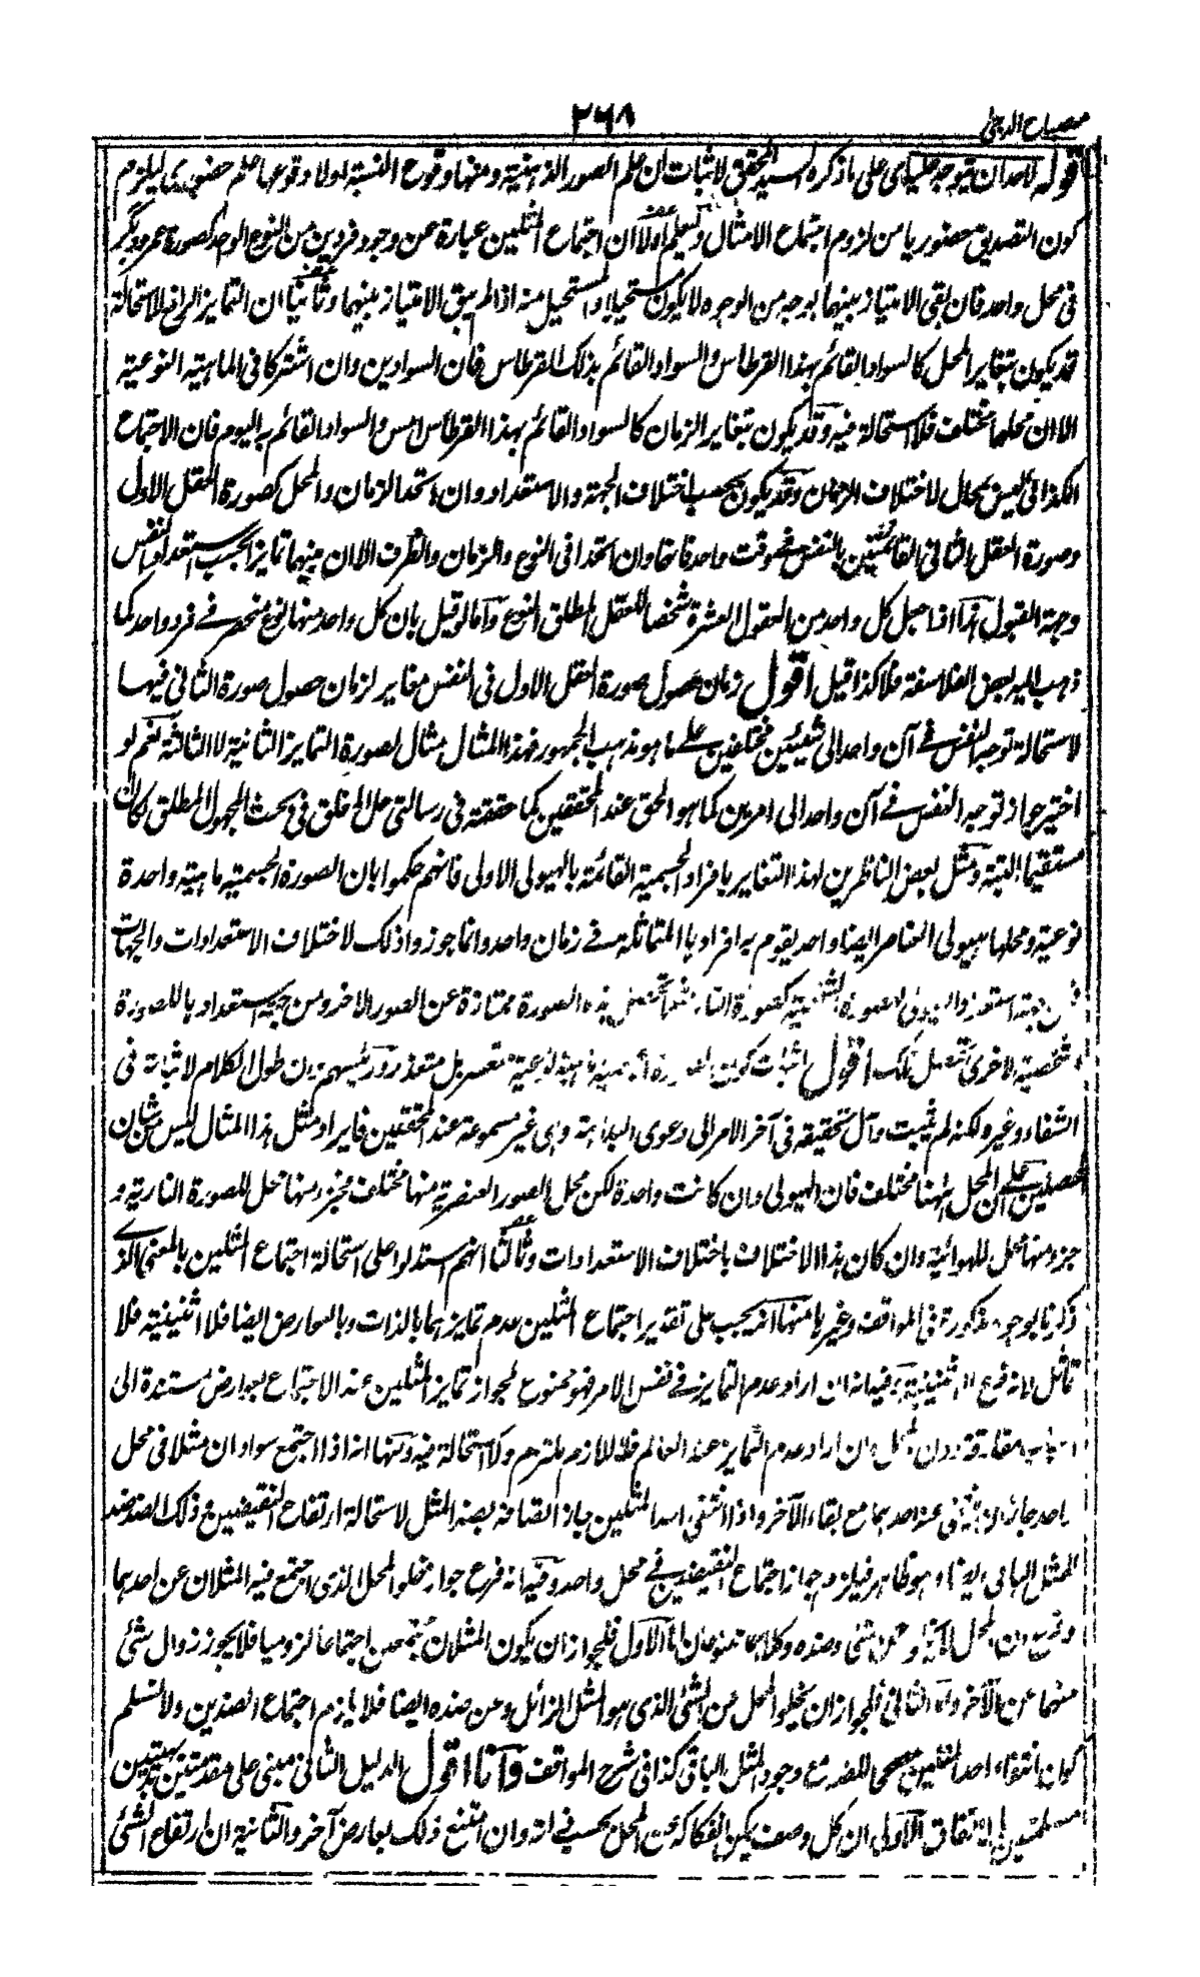 ٢٦٨
مصباح الدجى
قوله لاحد ان يتوجه عليه اى على ما ذكره السيد المحقق لاثبات ان علم الصور الذهنية ومنها وقوع النسبة اولا وقوعها علم حضورى ليلزم
كون التصديق حضوريا من لزوم اجتماع الامثال وتسليم اولا ان اجتماع المثلين عبارة عن وجود فردين من النوع الواحد كصورة عمرو وبكر
فى محل واحد فان بقى الامتياز بينهما بوجه من الوجوه لا يكون مستحيلا والمستحيل منه اذا لم يبق الامتياز بينهما وثانيا ان التمايز الرافع للاستحالة
قد يكون بتغاير المحل كالسواد القائم بهذا القرطاس والسواد القائم بذلك القرطاس فان السوادين وان اشتركا فى الماهية النوعية
الا ان محلهما مختلف فلا استحالة فيه وقد يكون بتغاير الزمان كالسواد القائم بهذا القرطاس امس والسواد القائم به اليوم فان الاجتماع
الكذائى ليس بمحال لاختلاف الزمان وقد يكون بحسب اختلاف الجهة والاستعداد وان اتحد الزمان والمحل كصورة العقل الاول
وصورة العقل الثانى القائمتين بالنفس فى وقت واحد فانهما وان اتحدا فى النوع والزمان والظرف الا ان بينهما تمايزا بحسب استعداد النفس
وجهة القبول هذا اذا جعل كل واحد من العقول العشرة شخصا للعقل المطلق النوع واما لو قيل بان كل واحد منها نوع منحصر فى فرد واحد كما
ذهب اليه بعض الفلاسفة فلا كذا قيل اقول زمان حصول صورة العقل الاول فى النفس مغاير لزمان حصول صورة الثانى فيها
لاستحالة توجه النفس فى آن واحد الى شيئين مختلفين على ما هو مذهب الجمهور فهذا المثال مثال لصورة التمايز الثانية لا الثالثة نعم لو
اختير جواز توجه النفس فى آن واحد الى امرين كما هو الحق عند المحققين كما حققته فى رسالتى حل المغلق فى بحث المجهول المطلق لكان
مستقيما البتة ومثل بعض الناظرين لهذا التغاير بافراد الجسمية القائمة بالهيولى الاولى فانهم حكموا بان الصورة الجسمية ماهية واحدة
نوعية ومحلها هيولى العناصر ايضا واحد يقوم به افرادها المتماثلة فى زمان واحد وانما جوزوا ذلك لاختلاف الاستعدادات والجهات
فمن جهة استعداد الهيولى للصورة الشخصية كصورة النار مثلا تحصل هذه الصورة ممتازة عن الصور الاخر ومن جهة استعدادها للصورة
الشخصية الاخرى تحصل تلك اقول اثبات كون الصورة الجسمية ماهية نوعية متعسر بل متعذر ورئيسهم وان طول الكلام لاثباته فى
الشفاء وغيره لكنه لم يثبت وآل تحقيقه فى آخر الامر الى دعوى البداهة وهى غير مسموعة عند المحققين فايراد مثل هذا المثال ليس من شان
المحصلين على ان المحل ههنا مختلف فان الهيولى وان كانت واحدة لكن محل الصور العنصرية منها مختلف فجزء منها محل للصورة النارية و
جزء منها محل للهوائية وان كان هذا الاختلاف باختلاف الاستعدادات وثالثا انهم استدلوا على استحالة اجتماع المثلين بالمعنى الذى
ذكرنا بوجوه مذكورة فى المواقف وغيرها منها انه يجب على تقدير اجتماع المثلين عدم تمايزهما بالذات وبالعوارض ايضا فلا اثنينية فلا
تماثل لانه فرع الاثنينية وفيه انه ان اراد عدم التمايز فى نفس الامر فهو ممنوع لجواز تمايز المثلين عند الاجتماع بعوارض مستندة الى
اسباب مفارقة دون المحل وان اراد عدم التمايز عند العالم فاللازم ملتزم ولا استحالة فيه ومنها انه اذا اجتمع سوادان مثلا فى محل
واحد جاز ان ينتفى عنه احدهما مع بقاء الآخر واذا انتفى احد المثلين جاز اتصافه بضد المثل لاستحالة ارتفاع النقيضين وذلك الضد ضد
للمثل الباقى ايضا وهو ظاهر فيلزم جواز اجتماع النقيضين فى محل واحد وفيه انه فرع جواز خلو المحل الذى اجتمع فيه المثلان عن احدهما
وفرع ان المحل لا يخلو عن شئ وضده وكلاهما ممنوعان اما الاول فلجواز ان يكون المثلان مجتمعين اجتماعا لزوميا فلا يجوز زوال شئ
منهما عن الآخر واما الثانى فلجواز ان يخلو المحل عن الشئ الذى هو المثل الزائل وعن ضده ايضا فلا يلزم اجتماع الضدين ولا نسلم
كون انتفاء احد المثلين مصححا للضد مع وجود المثل الباقى كذا فى شرح المواقف وانا اقول الدليل الثانى مبنى على مقدمتين بديهيتين
مسلمتين بالاتفاق الاولى ان كل وصف يمكن انفكاكه عن المحل بحسب ذاته وان امتنع ذلك بعارض آخر والثانية ان ارتفاع الشئ